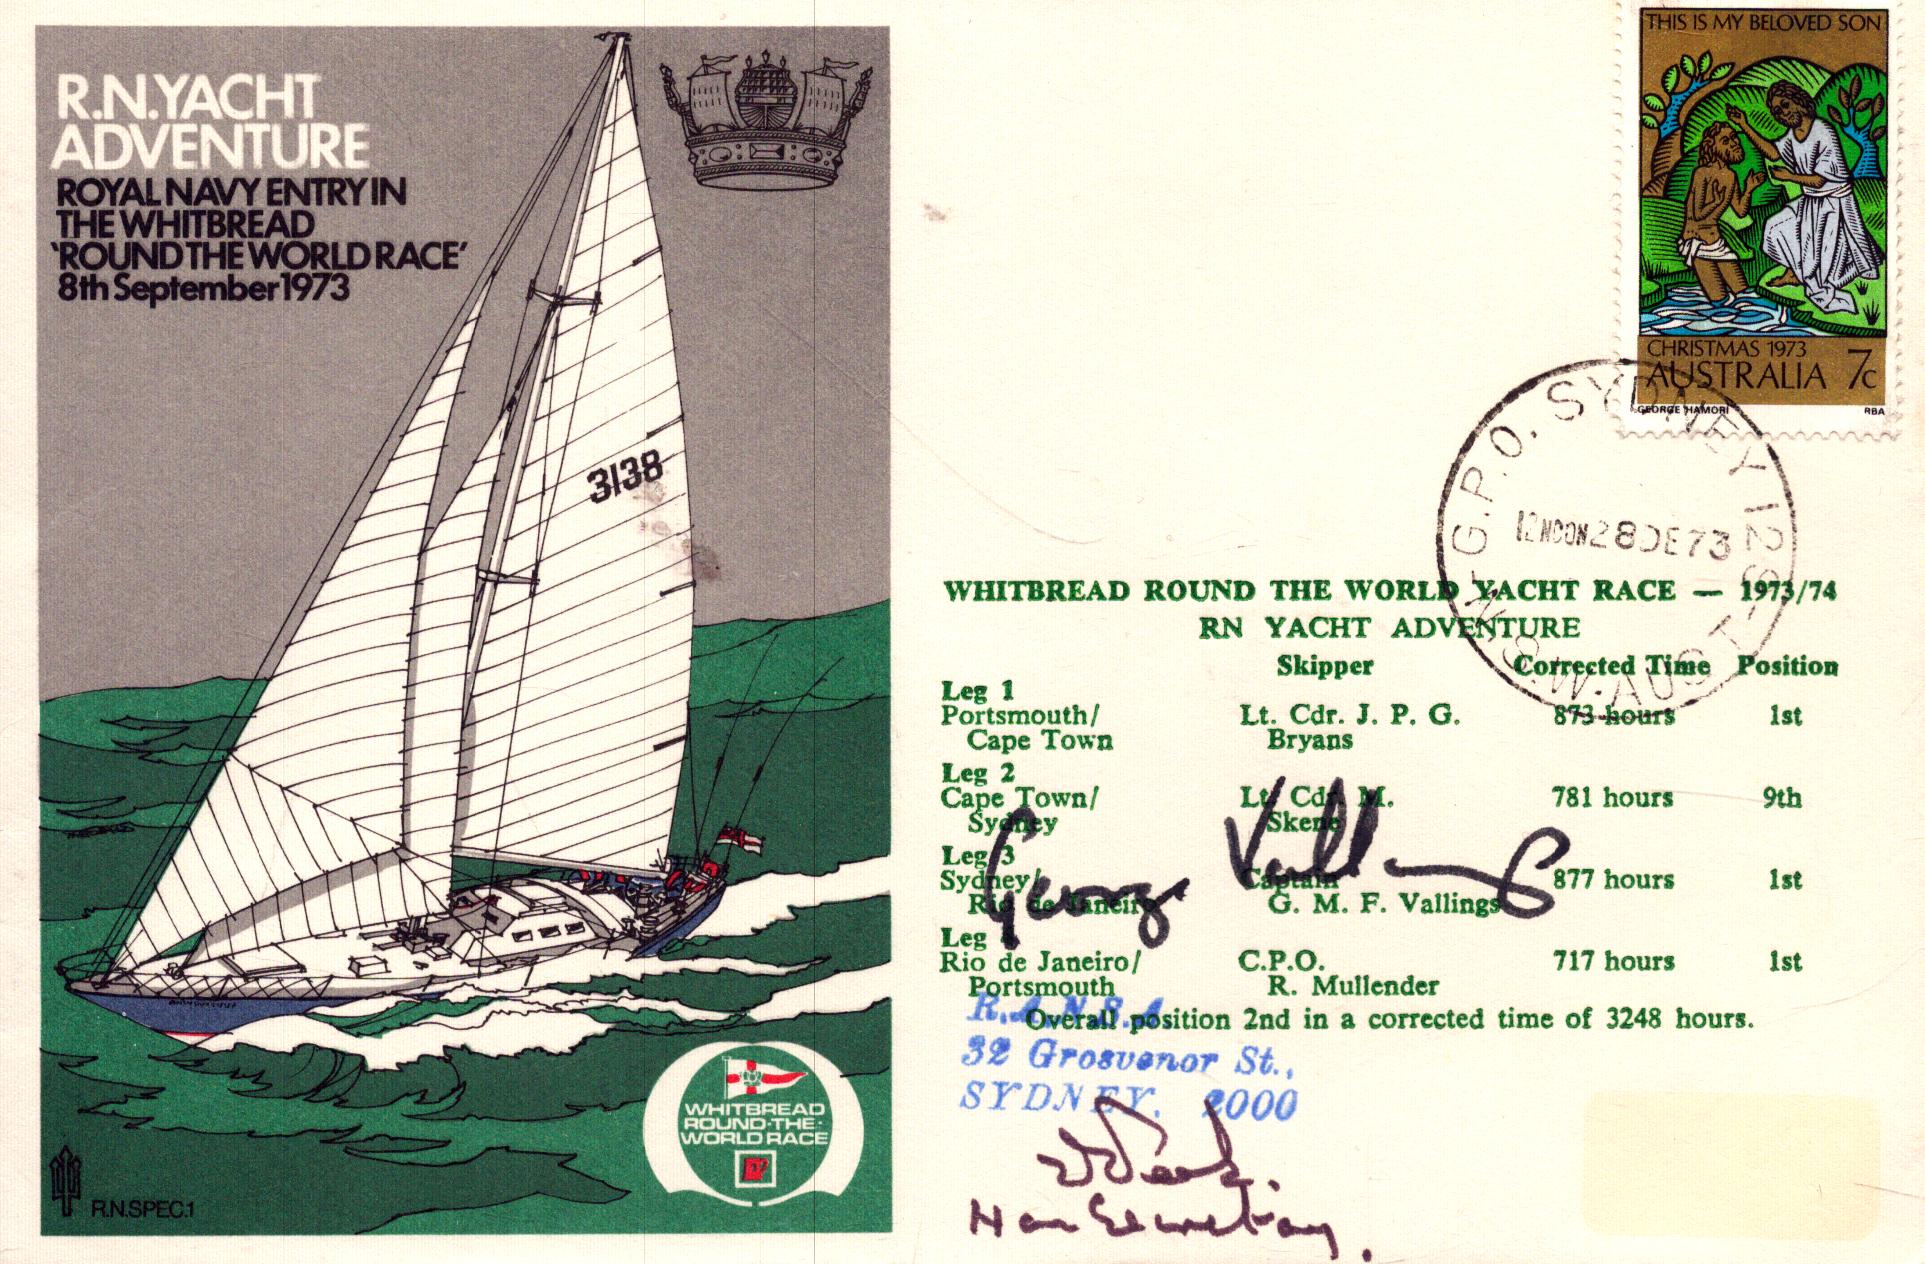 R.N.YACHT
ADVENTURE
ROYAL NAVY ENTRY IN
THE WHITBREAD
'ROUND THE WORLD RACE'
8th September 1973
3138
WHITBREAD
ROUND·THE·
WORLD RACE
R.N.SPEC.1
THIS IS MY BELOVED SON
CHRISTMAS 1973
AUSTRALIA 7c
GEORGE HAMORI RBA
G.P.O. SYDNEY
12 NOON 28 DE 73
N.S.W.-AUST
WHITBREAD ROUND THE WORLD YACHT RACE — 1973/74
RN YACHT ADVENTURE
Skipper Corrected Time Position
Leg 1
Portsmouth/ Lt. Cdr. J. P. G. 873 hours 1st
Cape Town Bryans
Leg 2
Cape Town/ Lt. Cdr. M. 781 hours 9th
Sydney Skene
Leg 3
Sydney/ Captain 877 hours 1st
Rio de Janeiro G. M. F. Vallings
George Vallings
Leg
Rio de Janeiro/ C.P.O. 717 hours 1st
Portsmouth R. Mullender
Overall position 2nd in a corrected time of 3248 hours.
R.A.N.S.A.
32 Grosvenor St.,
SYDNEY. 2000
Hon Secretary.